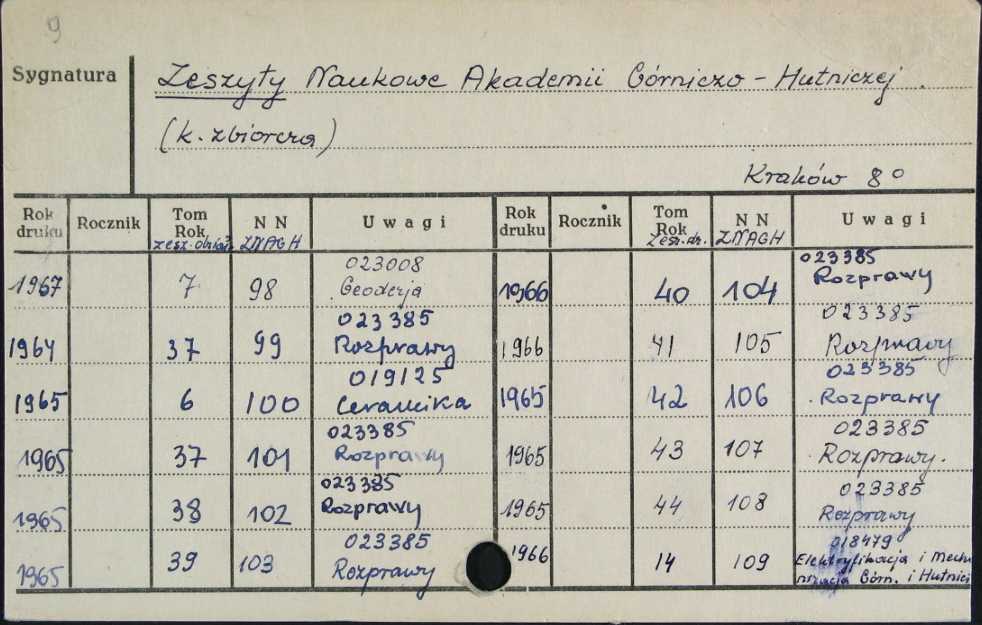 9
Sygnatura
Zeszyty Naukowe Akademii Górniczo - Hutniczej.
(k. zbiorcza)
Kraków 8°
Rok druku Rocznik Tom Rok zesz. NN ZNAGH Uwagi Rok druku Rocznik Tom Rok Zesz. dz. NN ZNAGH Uwagi
1967 7 98 023008 Geodezja 1966 40 104 023385 Rozprawy
1964 37 99 023385 Rozprawy 1966 41 105 023385 Rozprawy
1965 6 100 019125 Ceramika 1965 42 106 023385 Rozprawy
1965 37 101 023385 Rozprawy 1965 43 107 023385 Rozprawy.
1965 38 102 023385 Rozprawy 1965 44 108 023385 Rozprawy
1965 39 103 023385 Rozprawy 1966 14 109 018479 Elektryfikacja i Mechanizacja Górn. i Hutnic